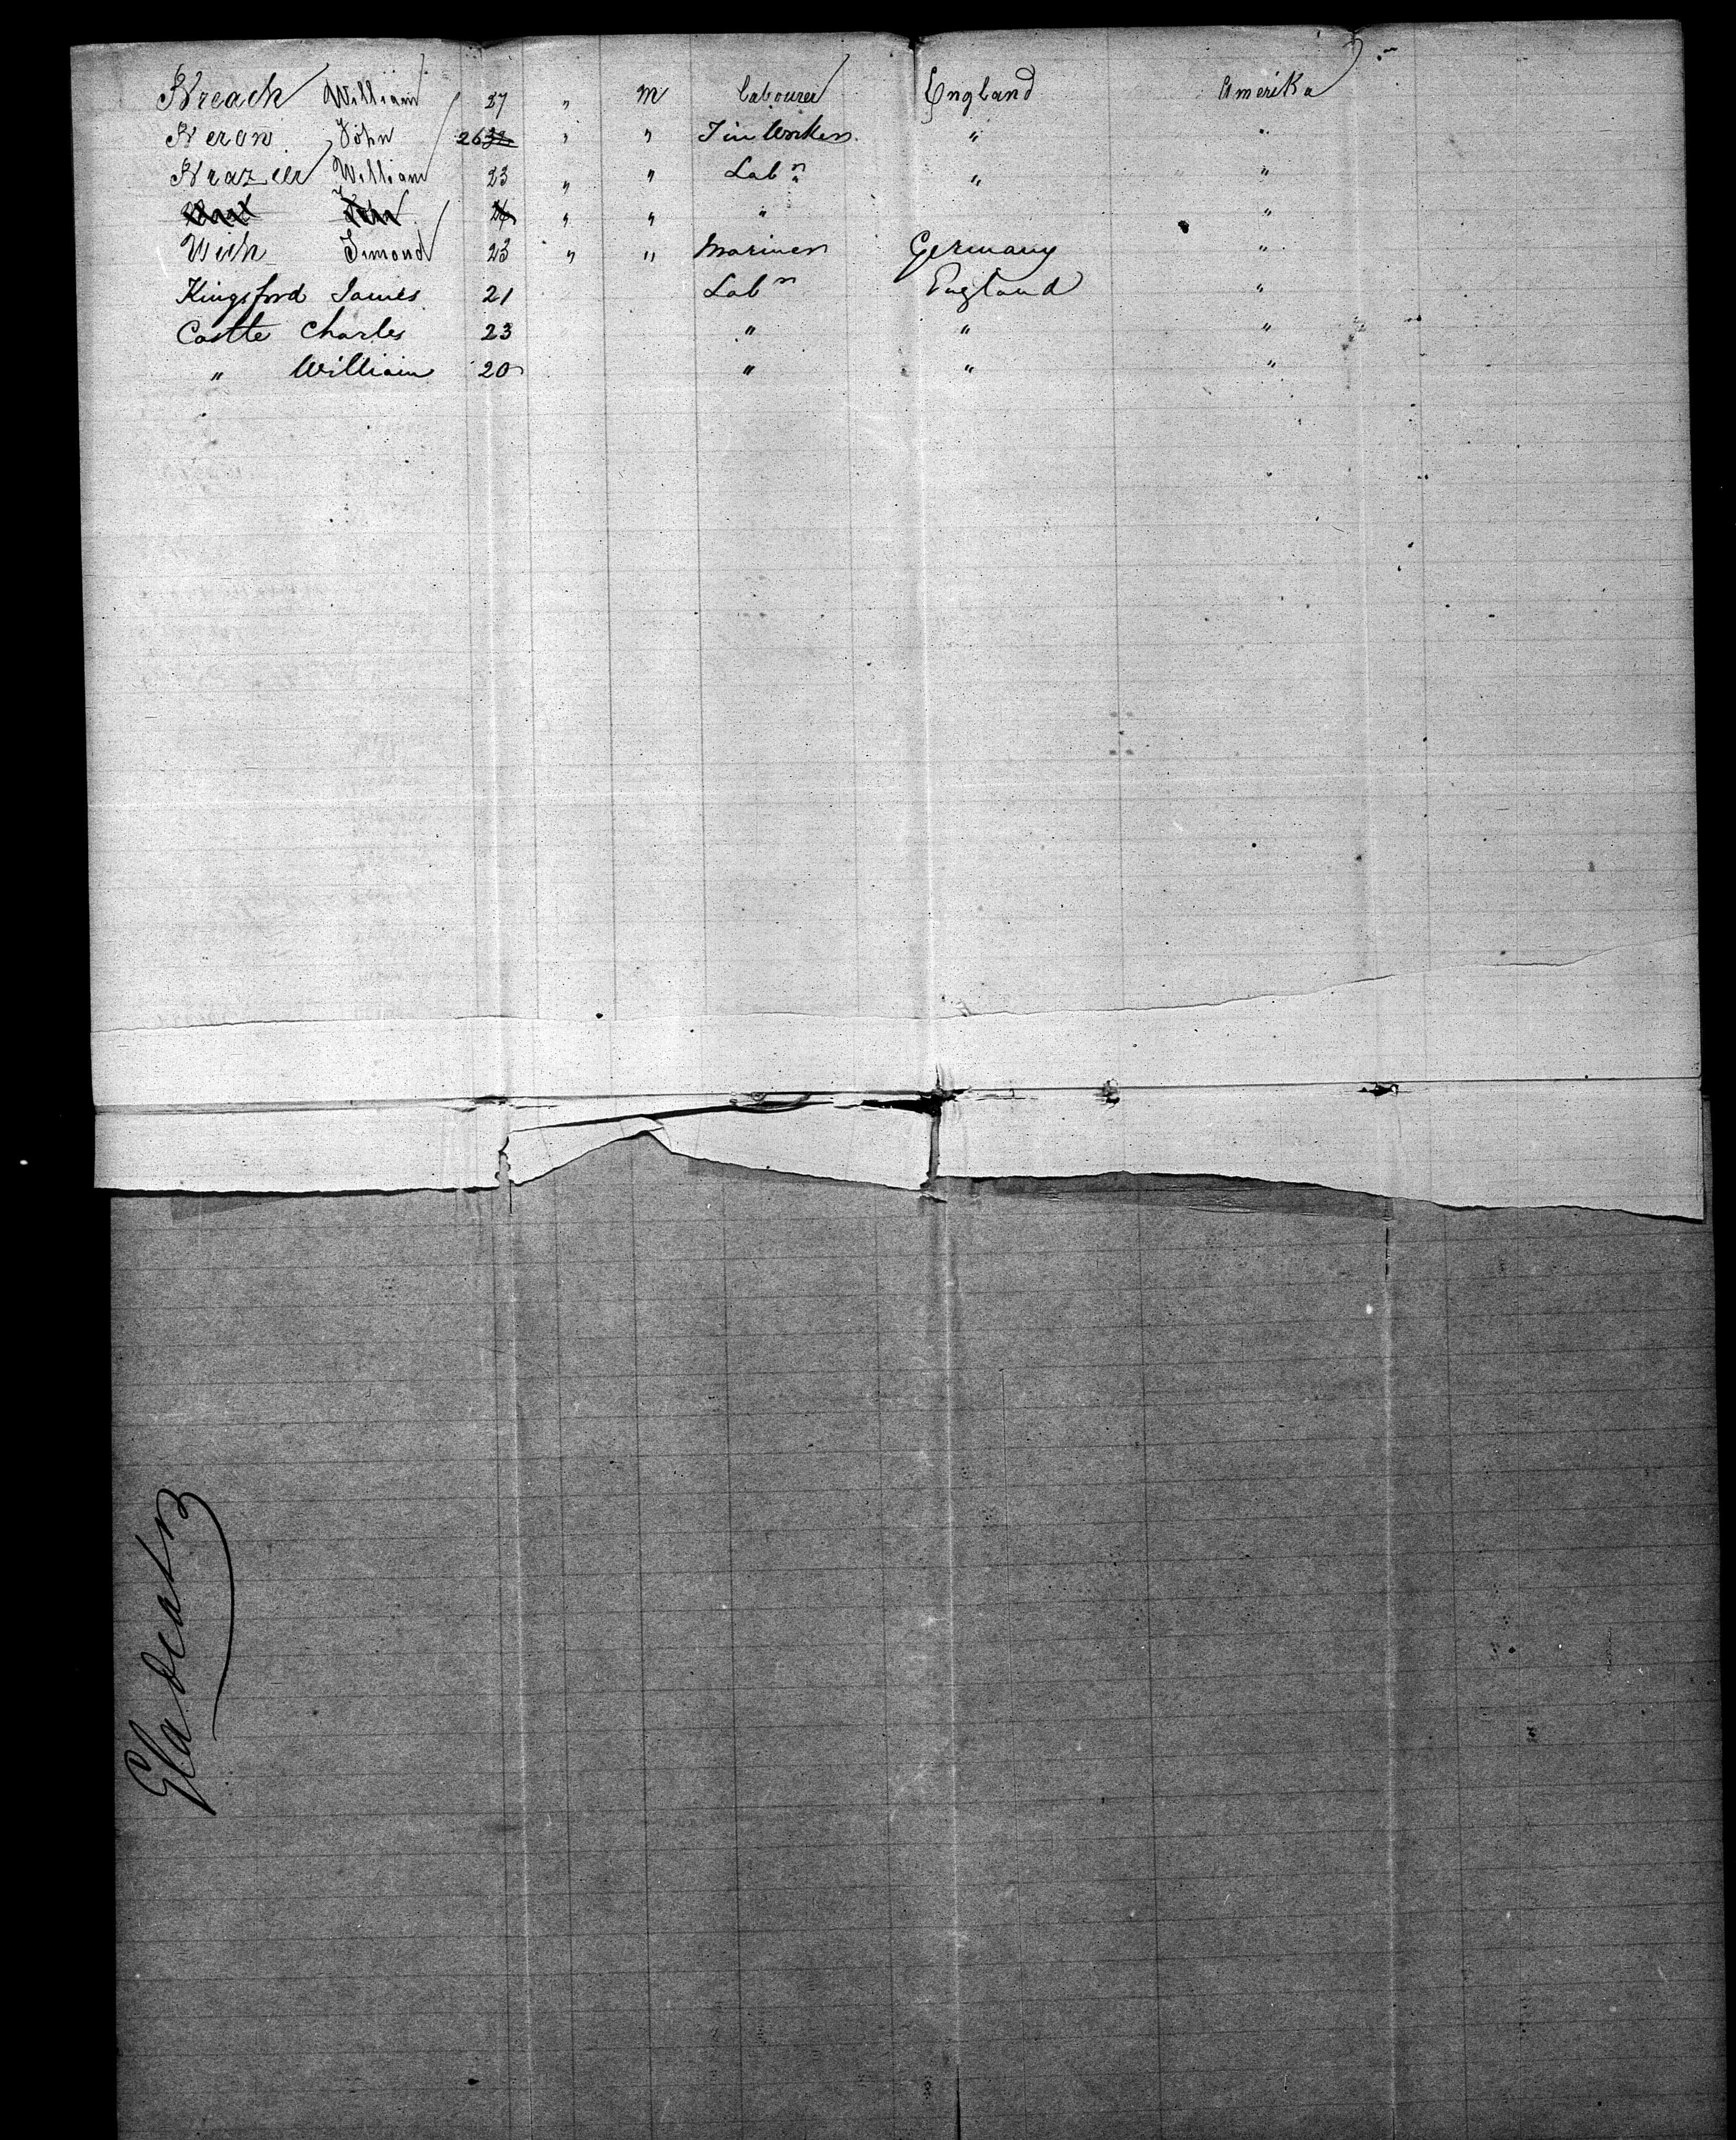 Breach William 27 " m Labourer England Amerika
Beran John 26 32 " " Tin Worker " "
Brazier William 23 " " Labr " "
John 26 " " " "
Wich Simond 23 " " Mariner Germany "
Kingsford James 21 Labr England "
Castle Charles 23 " " "
" William 20 " " "